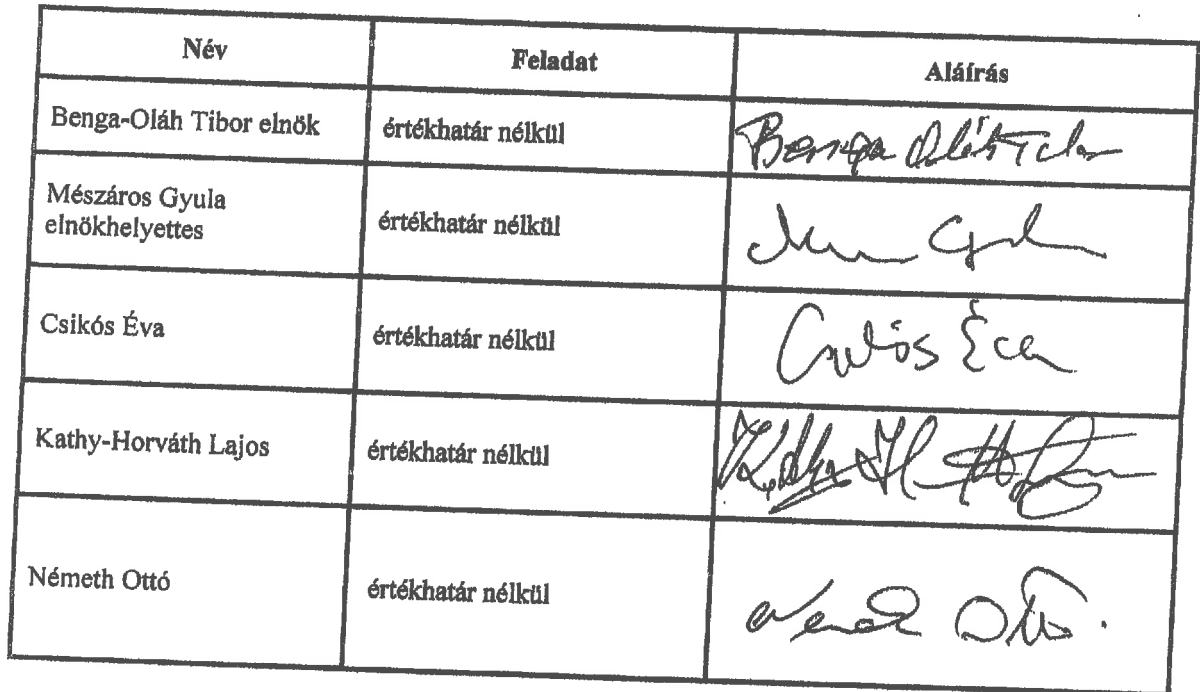 Név Feladat Aláírás
Benga-Oláh Tibor elnök értékhatár nélkül Benga Oláh Tibor
Mészáros Gyula
elnökhelyettes értékhatár nélkül
Csikós Éva értékhatár nélkül Csikós Éva
Kathy-Horváth Lajos értékhatár nélkül
Németh Ottó értékhatár nélkül Németh Ottó